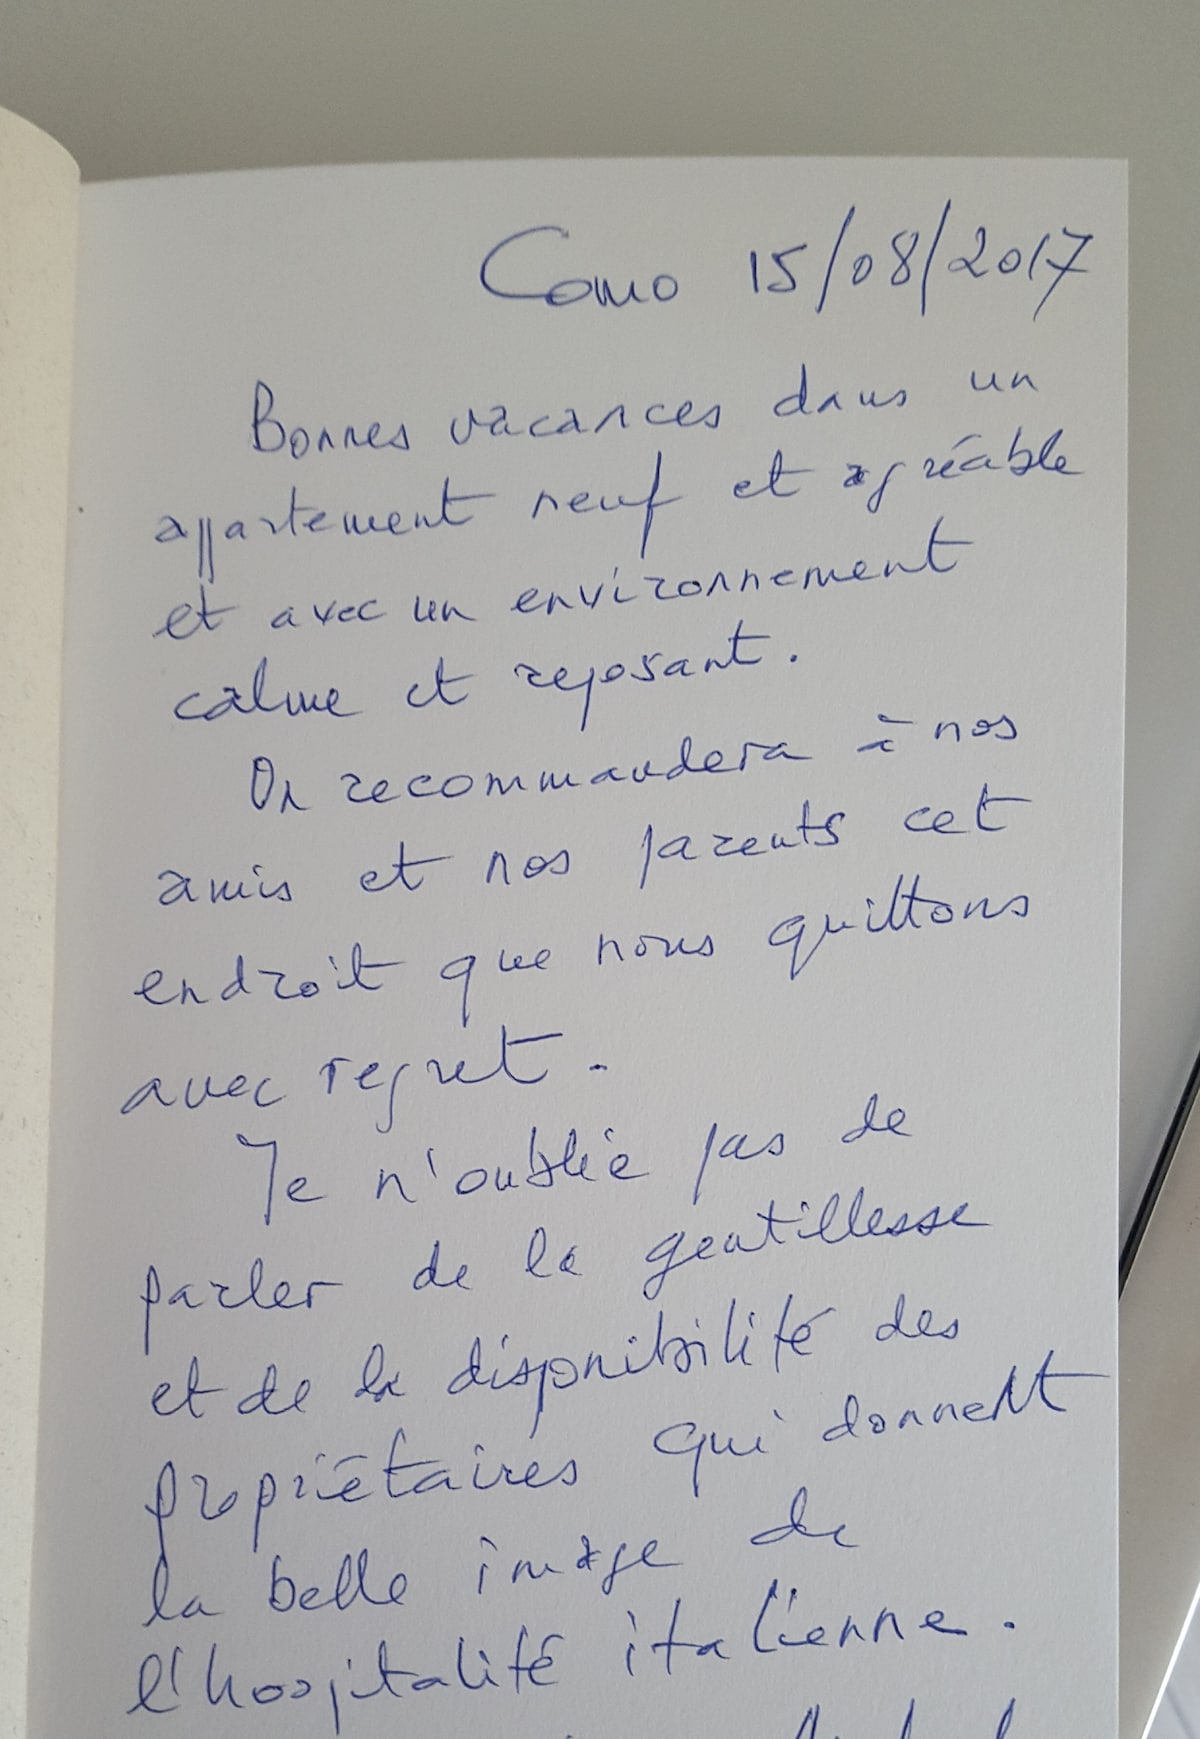 Como 15/08/2017
Bonnes vacances dans un
appartement neuf et agréable
et avec un environnement
calme et reposant.
On recommandera à nos
amis et nos parents cet
endroit que nous quittons
avec regret.
Je n'oublie pas de
parler de la gentillesse
et de la disponibilité des
propriétaires qui donnent
la belle image de
l'hospitalité italienne.